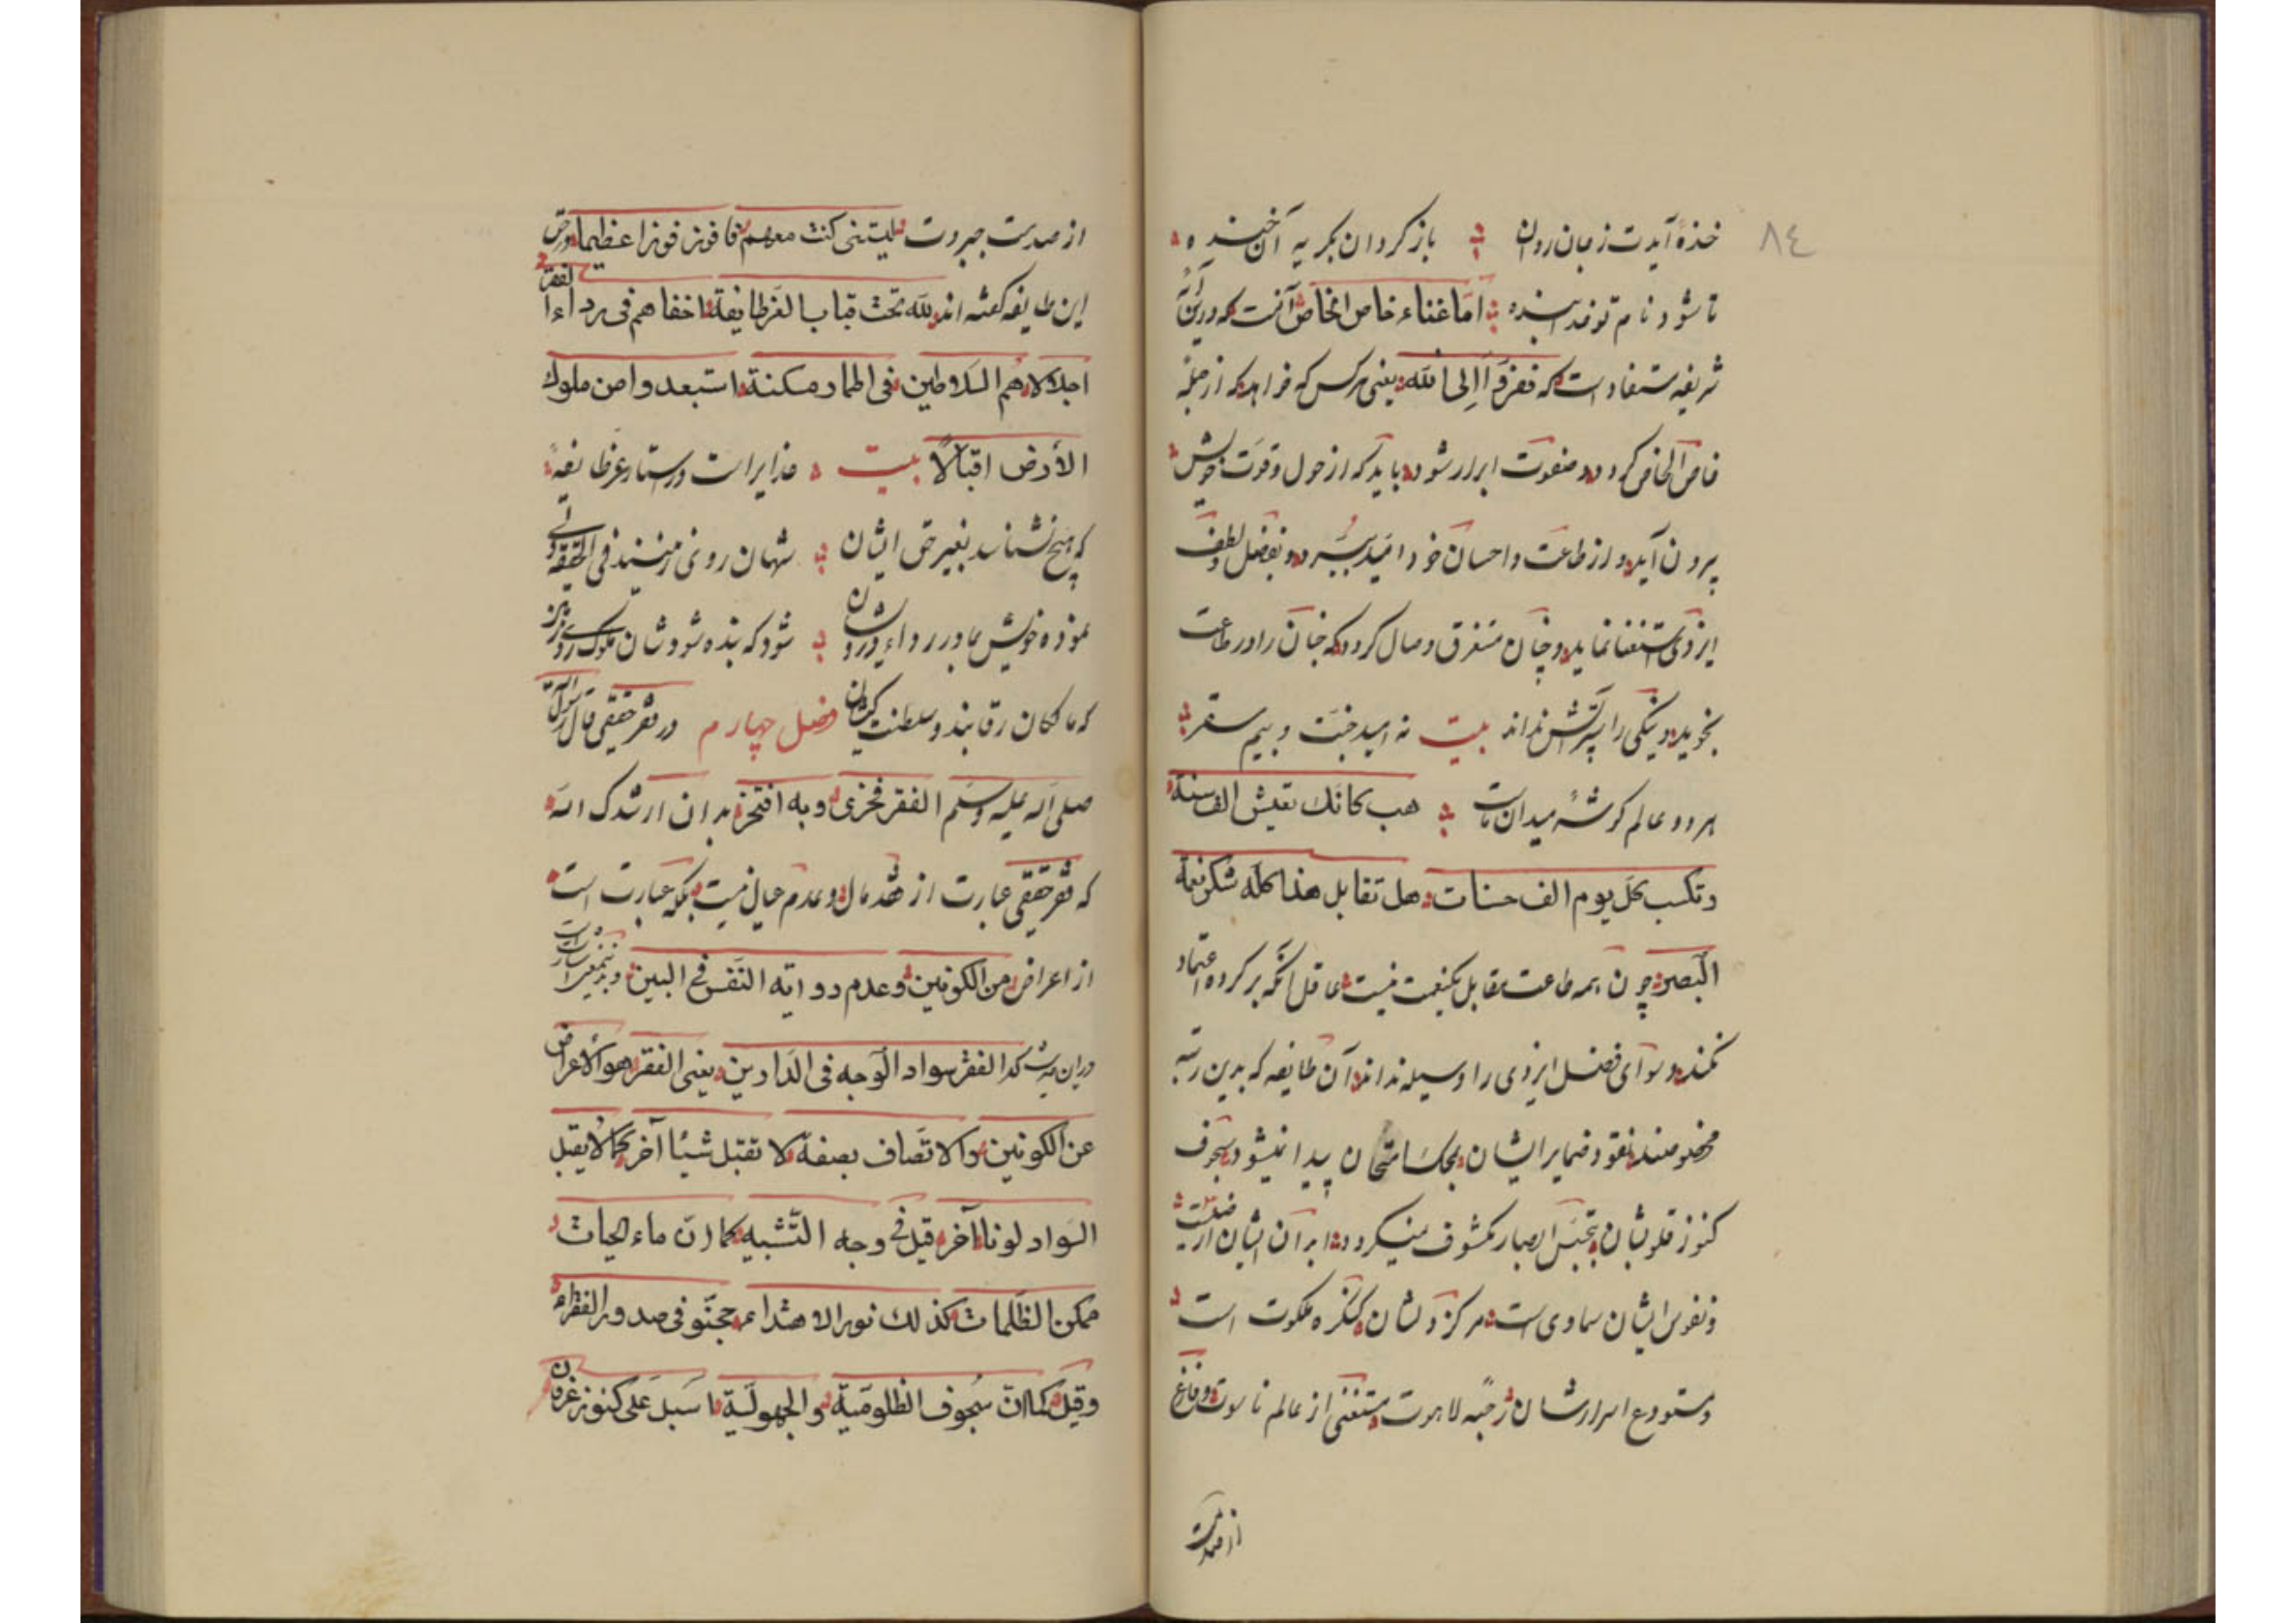 ٨٤
خندهٔ آیدت زمیان روان بازکردان بکریه آن خنده
تا شود نام تو خدا بنده امّا غناء خاص الخاص آنست که درین آیت
شریفه مستفاد است که ففرّوا الی الله یعنی هرکس که خواهد که از جملهٔ
خاص الخاص کردد و صفوت ابرار شود باید که از حول و قوّت خویش
بیرون آید و از طاعت و احسان خود امّید ببرد و بفضل و لطف
ایزدی استغنا نماید و چنان مستغرق وصال کردد که جنان را در طاعت
بخوید و نیکی را پرستش نداند بیت نه امید جنّت و بیم سقر
هر دو عالم کوشهٔ میدان ماست هب کانّک تعیش الف سنة
وتکسب کلّ یوم الف حسنات هل تقابل هذا کلّه شکر نعمة
البصر چون همه طاعت مقابل یکنعمت نیست عاقل تکیه بر کرده اعتماد
نکند و سوای فضل ایزدی را وسیله نداند آن طایفه که بدین رتبه
مخلوصند نقود ضمایر ایشان بمحکّ امتحان پیدا نمیشود و سجوف
کنوز قلوبشان بتجسّس ابصار مکشوف نمیکردد ابدان ایشان ارضیست
ونفوس ایشان سماوی است مرکز دلشان کنکره ملکوت است
ومستودع اسرارشان جبّه لاهوت مستغنی از عالم ناسوت و فارغ
از صمدیت
از صمدیت جبروت یالیتنی کنت معهم فافوز فوزا عظیما و در حق
این طایفه کفته اند لله تحت قباب العزّ طایفة اخفاهم فی رداء الفقر
اجلالا هم السلاطین فی اطمار مسکنة استبعدوا من ملوک
الأرض اقبالا بیت خدایراست در ستار عزّ طایفهٔ
که هیچ نشناسد بغیر حق ایشان شهان روی زمینند فی الحقیقة ولی
نموده خویش بما در رداء درویشان شود که بنده شود شان ملوک روی زمین
که مالکان رقابند و سلطنت کیشان فصل چهارم در فقر حقیقی قال رسول الله
صلی الله علیه وسلّم الفقر فخری وبه افتخر بدان ارشدک الله
که فقر حقیقی عبارت از فقد مال و عدم عیال نیست بلکه عبارت است
از اعراض من الکونین وعدم رؤیة النّفس فی البین و بدینمعنی اشارت است
الفقر سواد الوجه فی الدّارین یعنی الفقر هو الاعراض
عن الکونین والاتّصاف بصفة لا تقبل شیئا آخر کما لا یقبل
السّواد لونا آخر قیل فی وجه التّشبیه کما انّ ماء الحیات
ممکن الظّلمات کذلک نور الاهتداء مجنّو فی صدور الفقراء
وقیل کما انّ سجوف الظلومیّة والجهولیّة اسبل علی کنوز عرفان